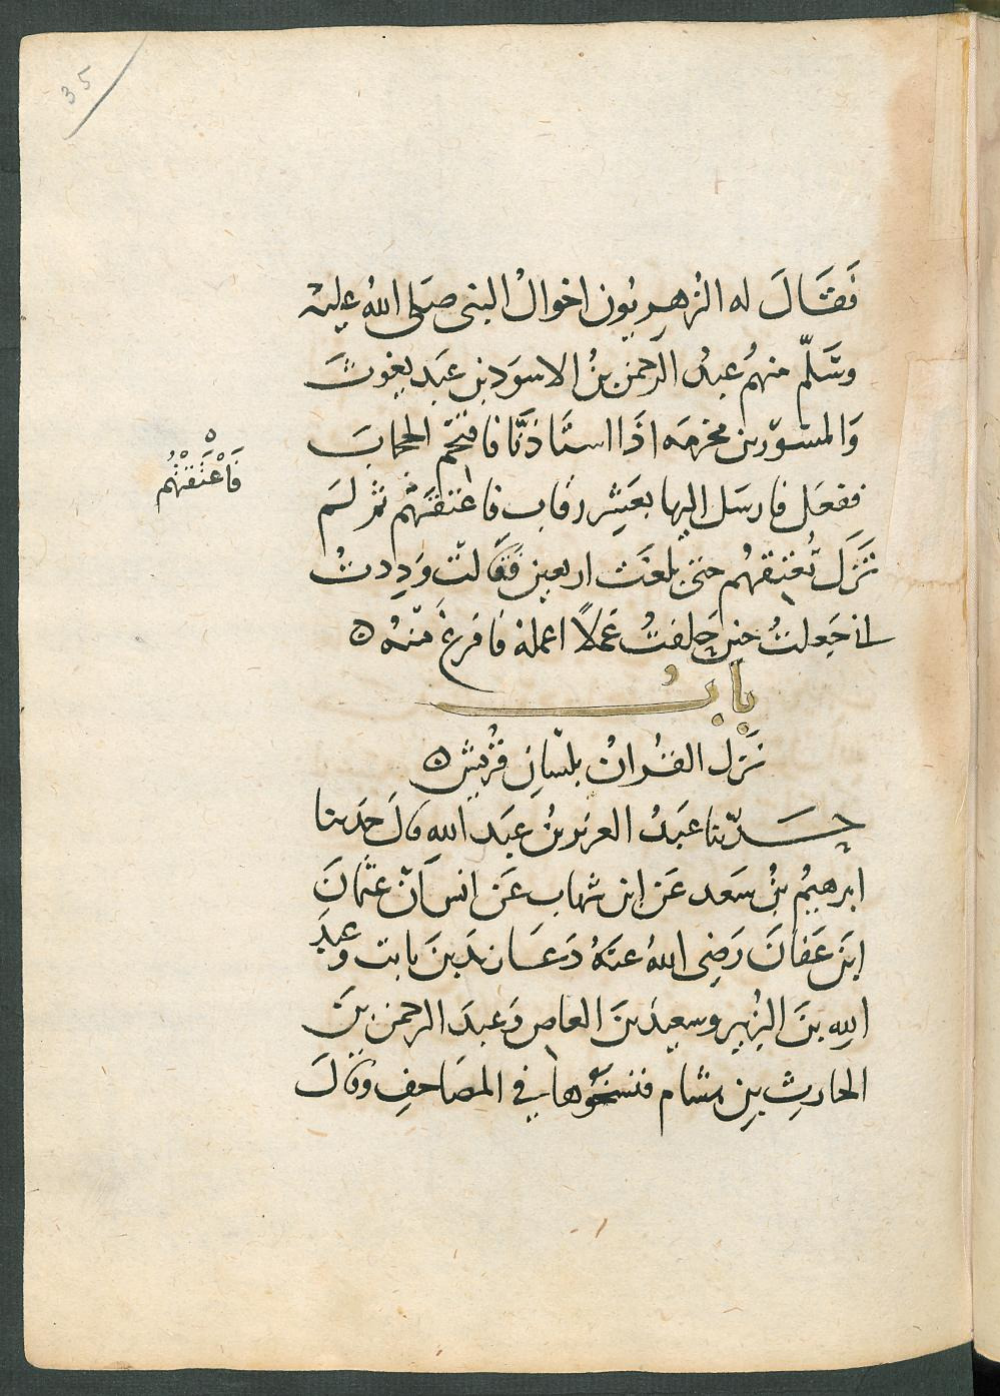 35
فَقَالَ له الزُهريون اخوالُ النبى صَلى اللهُ عليه
وسَلّم منهُم عبدُ الرحمن بنُ الاسوَد بن عَبد يغوثَ
وَالمسوَر بن مخرمَه اذَا استَاذنَّا فاقتحم الحجابَ
ففعَل فارسَل اليها بعَشِر رقابٍ فاعتقتهُم ثم لَم
فَاَعْتَقَتْهُم
تَزَل تُعتِقهُم حتى بلغَت اربعين فقَالت وَدِدتُ
انى جَعلتُ حينَ حَلفتُ عَملاً اعمله فافرغَ منهُ ه
بابُ
نَزَل القُرانُ بلسَانِ قُريشٍ ه
حَدّثنا عَبدُ العزيز بنُ عَبد الله قالَ حَدثنا
ابرهيمُ بنُ سَعد عَن ابن شهابٍ عَن انس انّ عثمانَ
ابنَ عَفانَ رَضِى اللهُ عنهُ دَعَا زيدَ بنَ ثابت وعبدَ
الله بنَ الزُبير وسعيدَ بنَ العاص وَعبدَ الرحمن بنَ
الحارثِ بن هشام فنسَخُوها في المصَاحفِ وقالَ